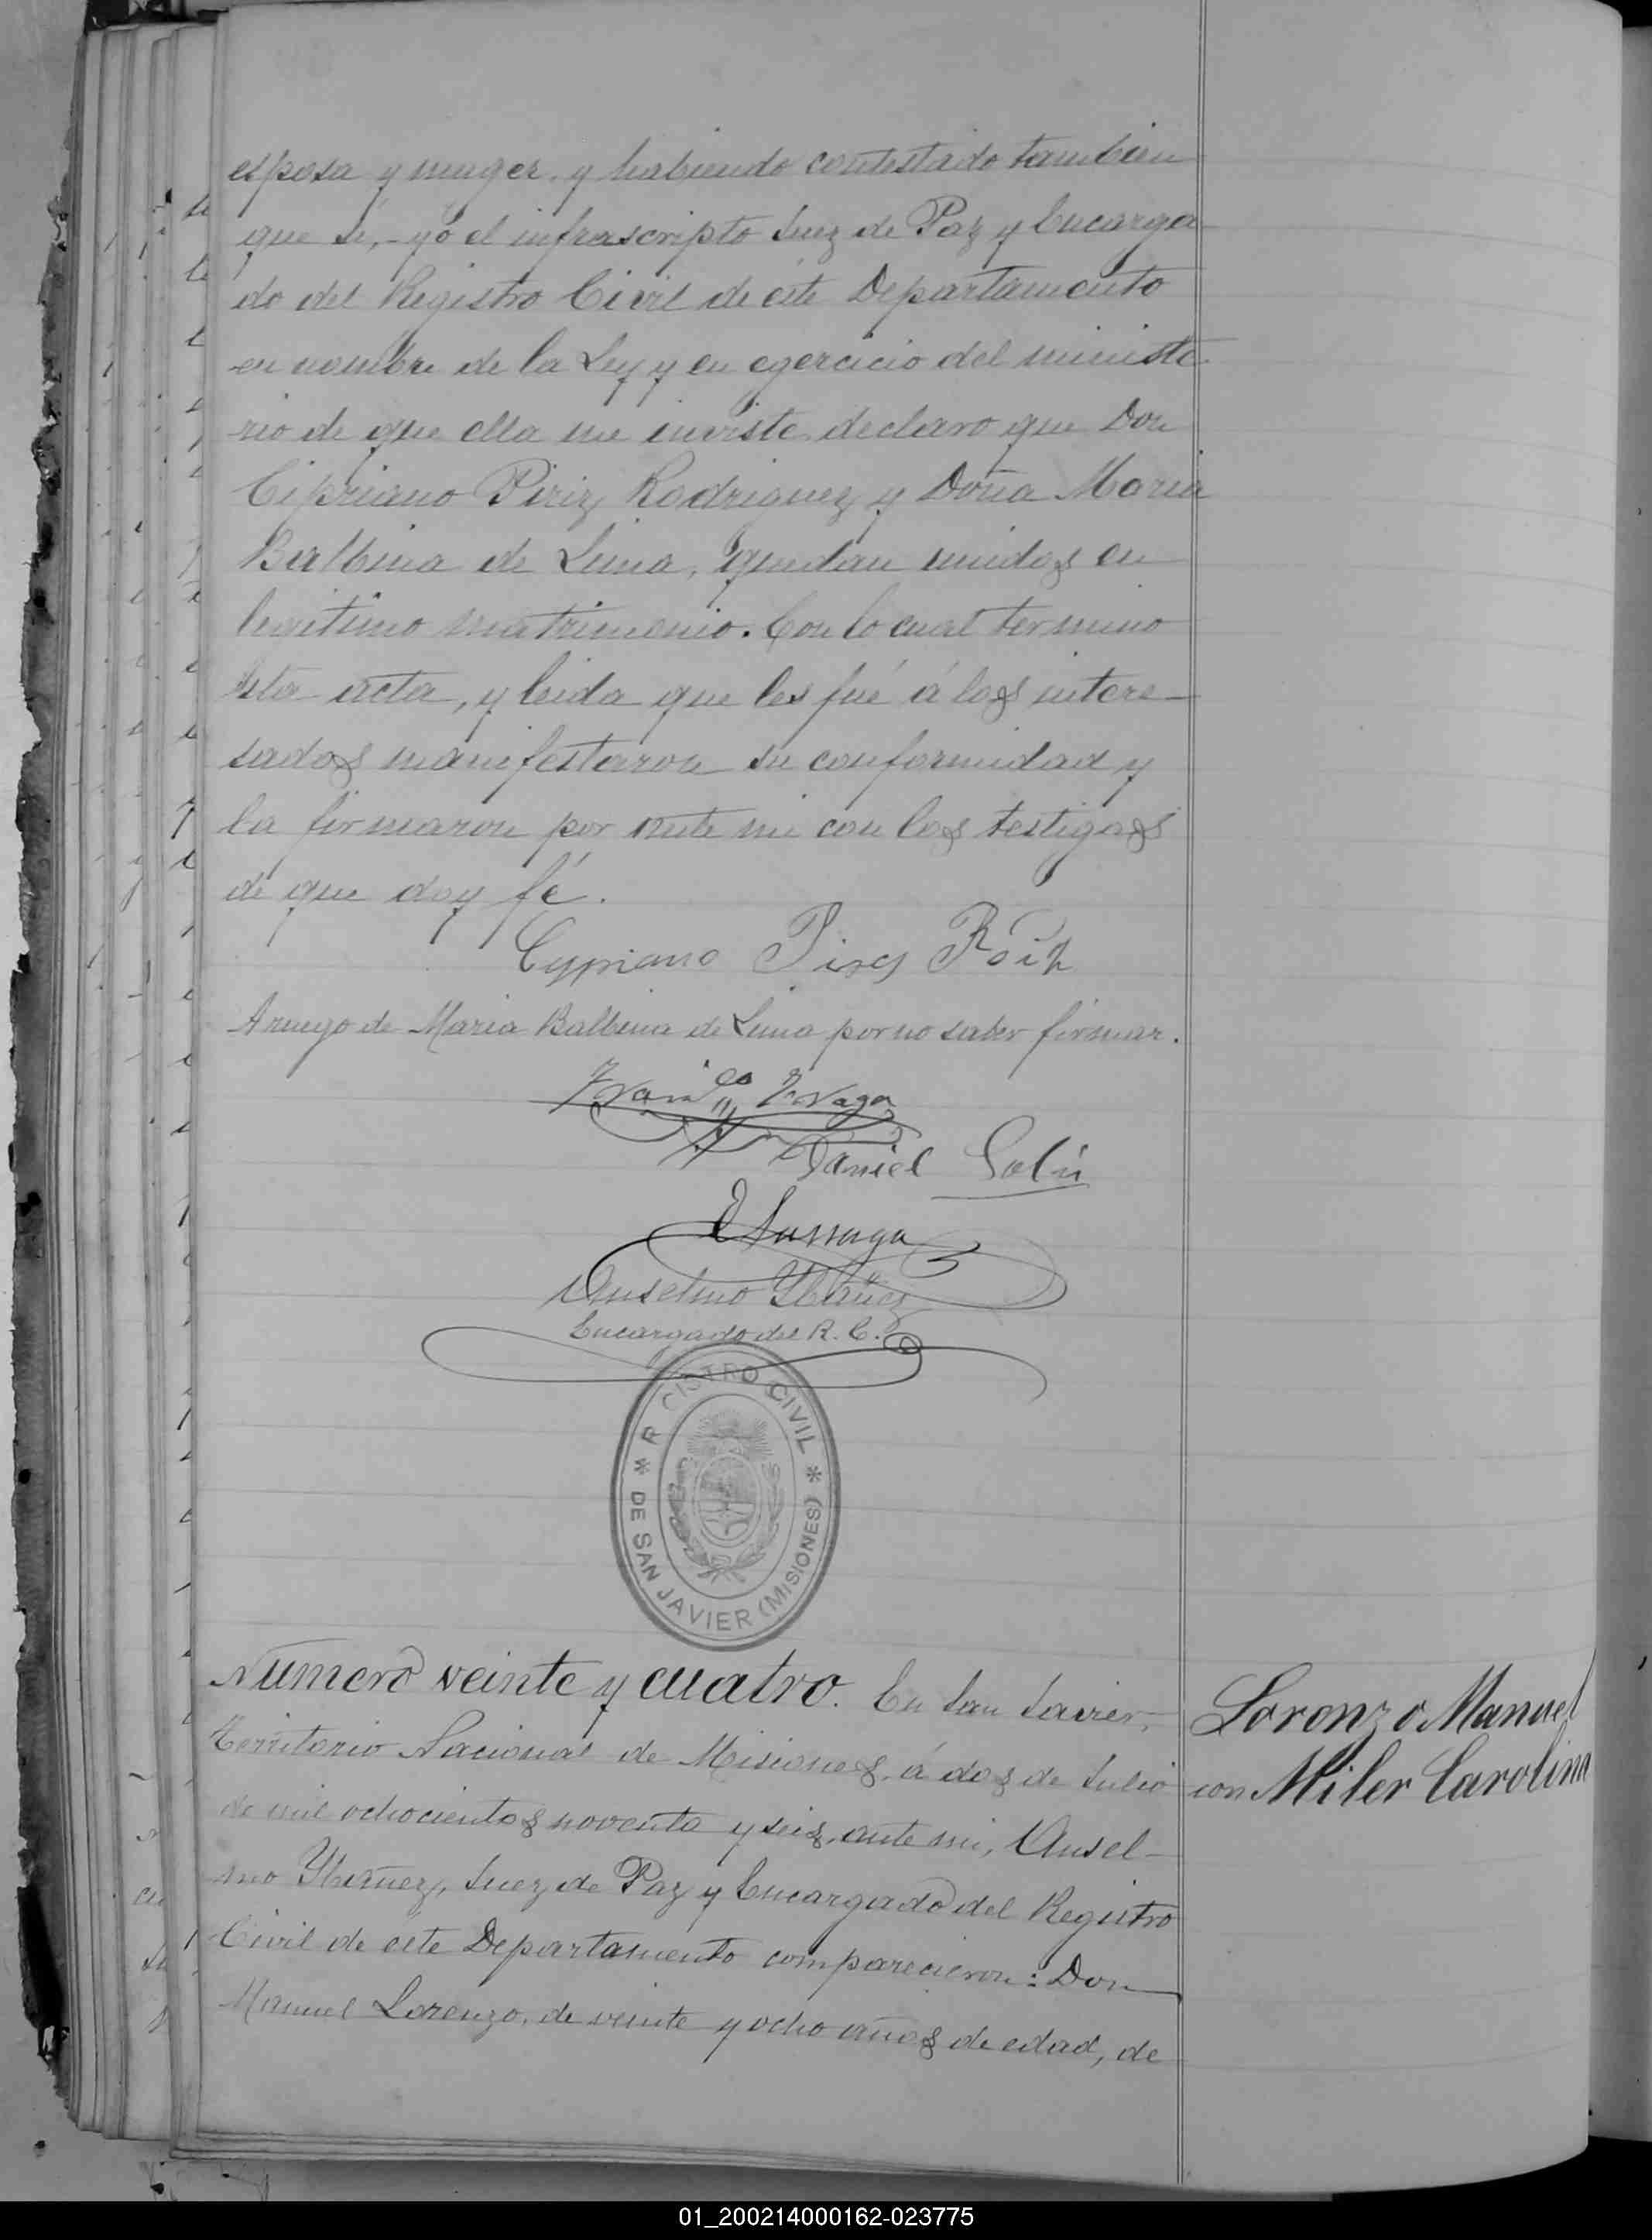 esposa y muger, y habiendo contestado tambien
que si,- yo el infrascripto Juez de Paz y Encarga
do del Registro Civil de éste Departamento
en nombre de la Ley y en egercicio del ministe
rio de que ella me inviste declaro que Don
Cipriano Piriz Rodriguez y Doña Maria
Balbina de Lima, quedan unidos en
legitimo matrimonio. Con lo cual termino
ésta acta, y leida que les fué á los intere-
sados manifestaron su conformidad y
la firmaron por ante mi con los testigos
de que doy fé.
Cypriano Pires
A ruego de Maria Balbina de Lima por no saber firmar.
Daniel
Anselmo Ybañez
Encargado del R. C.
REGISTRO CIVIL
* DE SAN JAVIER (MISIONES) *
Numero veinte y cuatro. En San Javier,
Territorio Nacional de Misiones, á dos de Julio
de mil ochocientos noventa y seis, ante mi, Ansel-
mo Ybañez, Juez de Paz y Encargado del Registro
Civil de éste Departamento comparecieron: Don
Manuel Lorenzo, de veinte y ocho años de edad, de
Lorenzo Manuel
con Miler Carolina
01_200214000162-023775